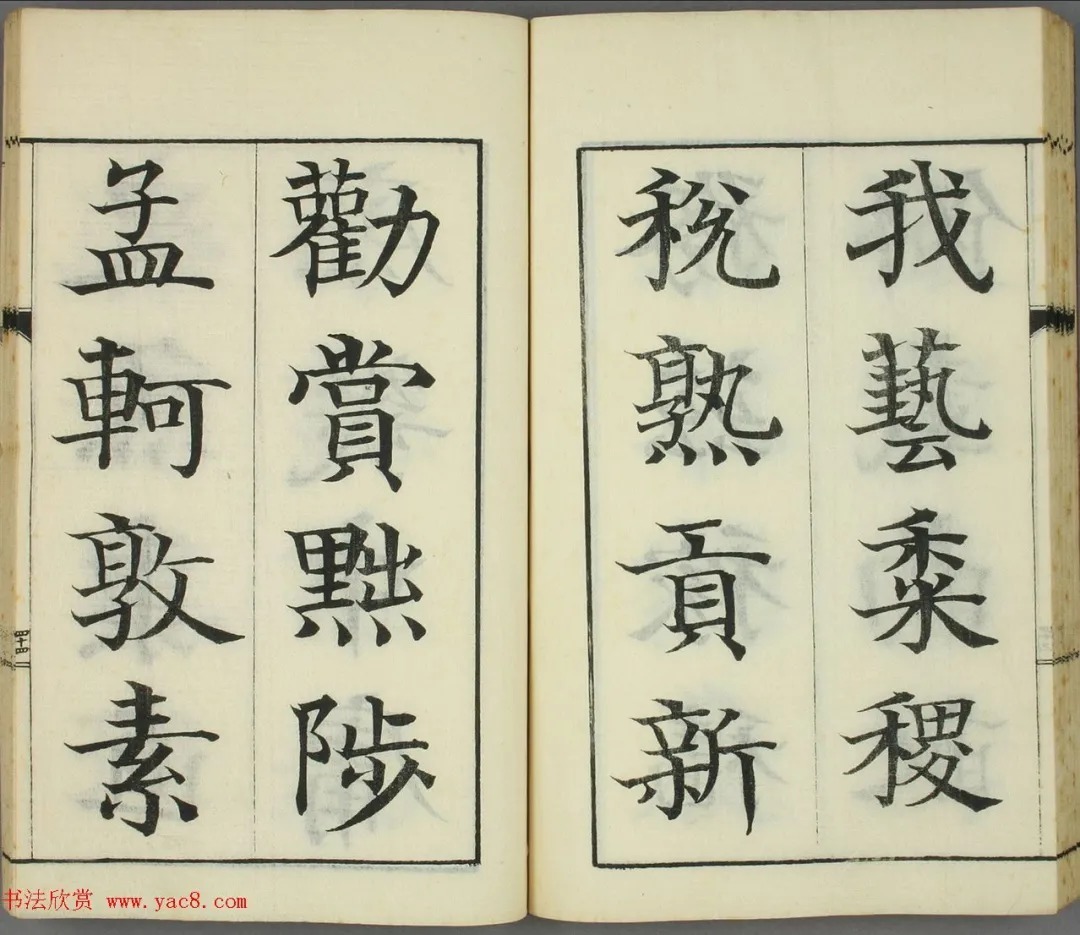 我藝黍稷
稅熟貢新
勸賞黜陟
孟軻敦素
四十四
书法欣赏 www.yac8.com